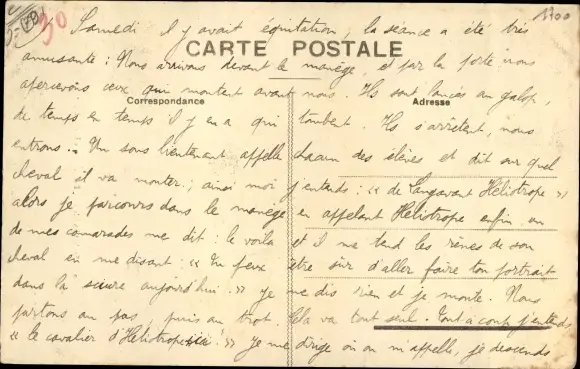 1300
30
Samedi il y avait équitation, la séance a été très
CARTE POSTALE
amusante : Nous arrivons devant le manège, et par la porte nous
apercevons ceux qui montent avant nous. Ils sont lancés au galop,
Correspondance
Adresse
de temps en temps il y en a qui tombent. Ils s'arrêtent, nous
entrons. Un sous lieutenant appelle chacun des élèves et dit sur quel
cheval il va monter ; ainsi moi j'entends : « de Langavant Héliotrope »
alors je parcours dans le manège en appelant Héliotrope enfin un
de mes camarades me dit : le voila et il me tend les rênes de son
cheval en me disant : « Tu peux être sûr d'aller faire ton portrait
dans la sciure aujourd'hui. » Je me dis rien et je monte. Nous
partons au pas, puis au trot. Cela va tout seul. Tout a coup j'entends
« le cavalier d'Héliotrope ici ! » Je me dirige où on m'appelle, je descends